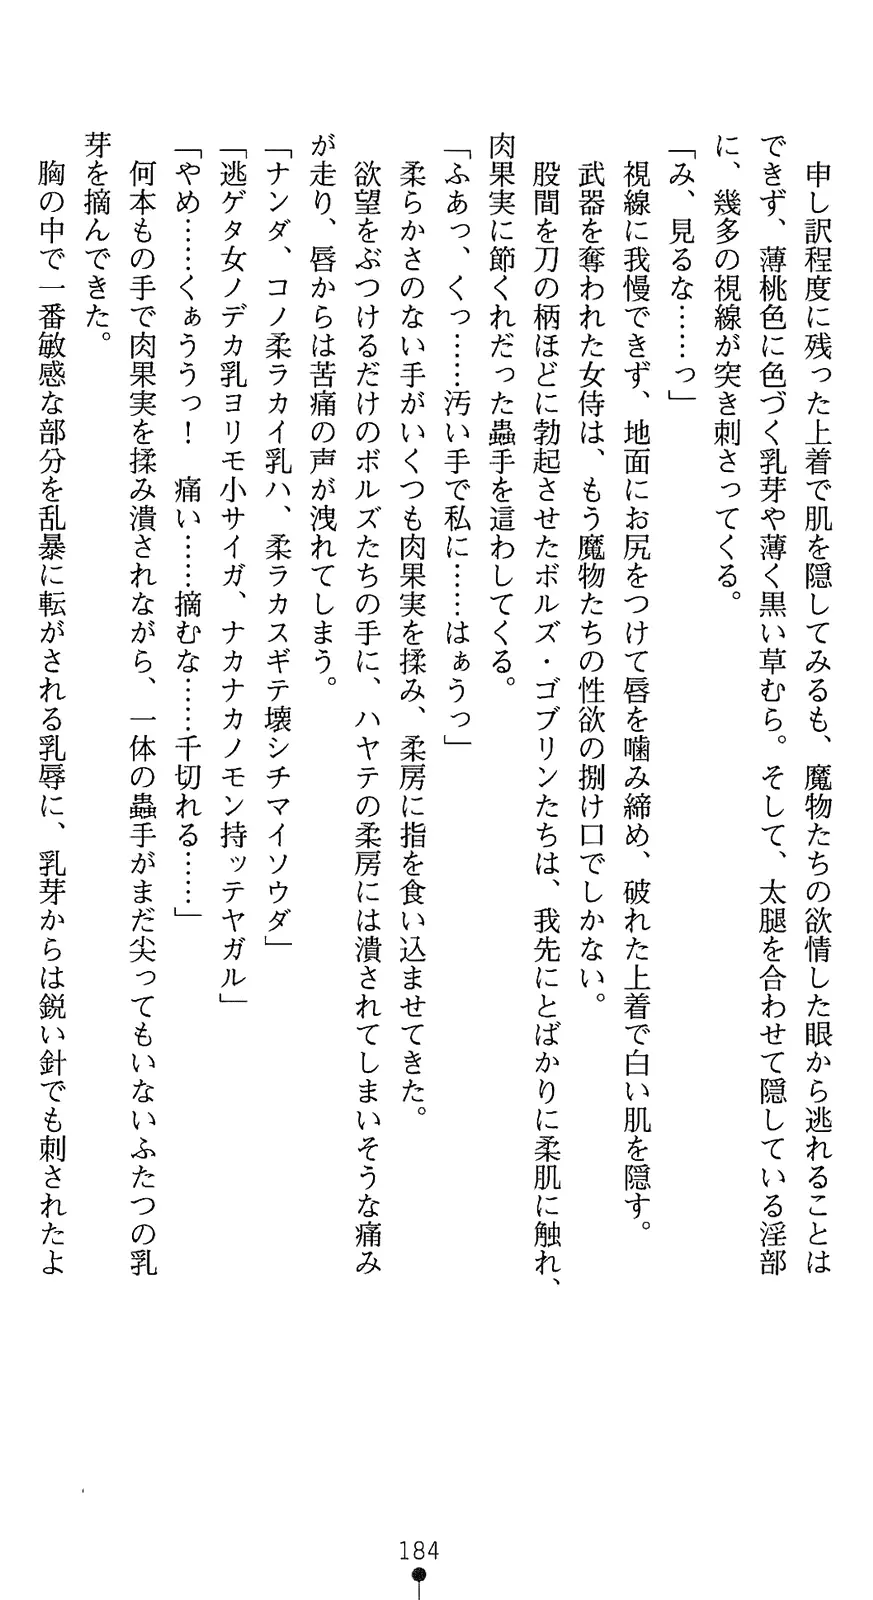 申し訳程度に残った上着で肌を隠してみるも、魔物たちの欲情した眼から逃れることは
できず、薄桃色に色づく乳芽や薄く黒い草むら。そして、太腿を合わせて隠している淫部
に、幾多の視線が突き刺さってくる。
「み、見るな……っ」
視線に我慢できず、地面にお尻をつけて唇を噛み締め、破れた上着で白い肌を隠す。
武器を奪われた女侍は、もう魔物たちの性欲の捌け口でしかない。
股間を刀の柄ほどに勃起させたボルズ・ゴブリンたちは、我先にとばかりに柔肌に触れ、
肉果実に節くれだった蟲手を這わしてくる。
「ふあっ、くっ……汚い手で私に……はぁうっ」
柔らかさのない手がいくつも肉果実を揉み、柔房に指を食い込ませてきた。
欲望をぶつけるだけのボルズたちの手に、ハヤテの柔房には潰されてしまいそうな痛み
が走り、唇からは苦痛の声が洩れてしまう。
「ナンダ、コノ柔ラカイ乳ハ、柔ラカスギテ壊シチマイソウダ」
「逃ゲタ女ノデカ乳ヨリモ小サイガ、ナカナカノモン持ッテヤガル」
「やめ……くぁううっ！　痛い……摘むな……千切れる……」
何本もの手で肉果実を揉み潰されながら、一体の蟲手がまだ尖ってもいないふたつの乳
芽を摘んできた。
胸の中で一番敏感な部分を乱暴に転がされる乳辱に、乳芽からは鋭い針でも刺されたよ
184